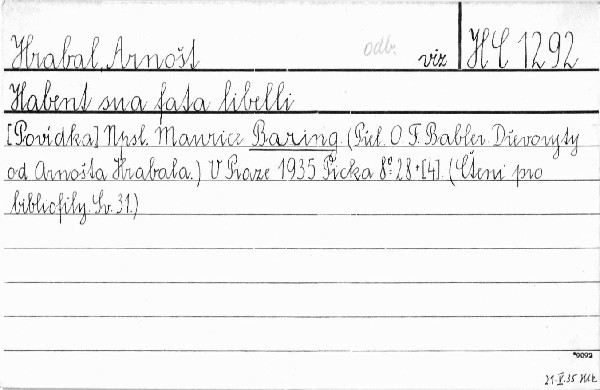 Hrabal, Arnošt odb. viz HC 1292
Habent sua fata libelli
[Povídka] Npsl. Mauricz Baring. (Přel. O. F. Babler. Dřevoryty
od Arnošta Hrabala.) V Praze 1935 Picka 8° 28+[4]. (Čtení pro
bibliofily. Sv. 31.)
*9092
21.V.35